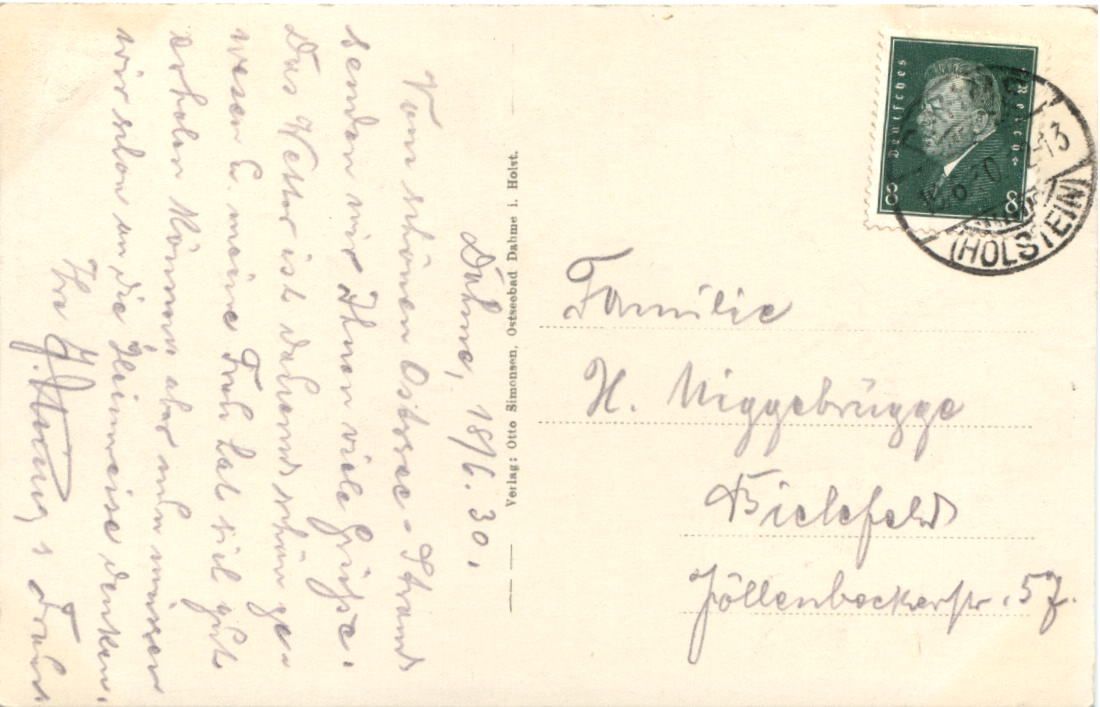 Dahme, 18/6.30.
Vom schönen Ostsee-Strand
senden wir Ihnen viele Grüsse.
Das Wetter ist dauernd schön ge-
wesen u. meine Frau hat sich gut
erholen können aber nun müssen
wir schon an die Heimreise denken.
Ihr u. Frau
Verlag: Otto Simonsen, Ostseebad Dahme i. Holst.
Deutsches Reich
8 8
(HOLSTEIN)
Familie
H. Niggebrügge
Bielefeld
Jöllenbeckerstr. 57.